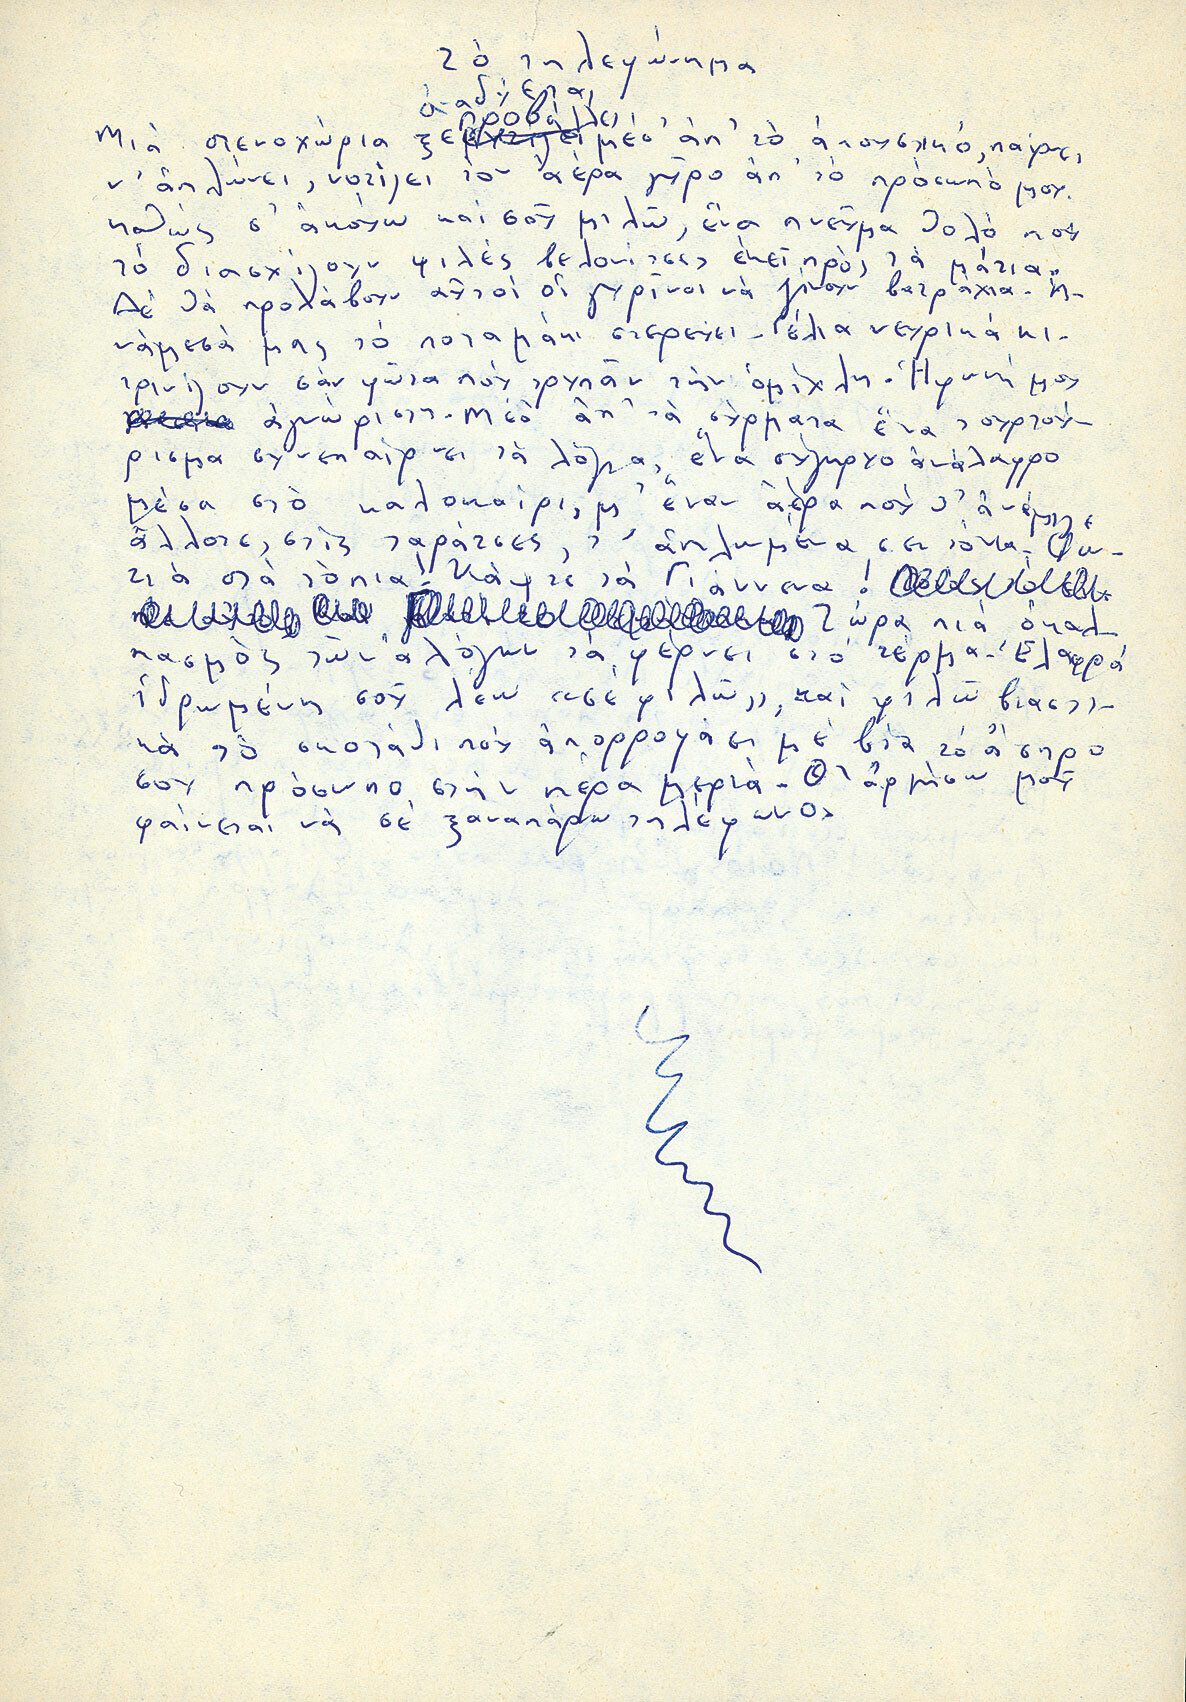 τὸ τηλεφώνημα
ἀναδύεται
προβάλλει
Μιὰ στενοχώρια ξεμυτίζει μέσ' ἀπ' τὸ ἀκουστικό, πάγει
ν' ἁπλώνει, νοτίζει τὸν ἀέρα γύρο ἀπ' τὸ πρόσωπό μου.
καθὼς σ' ἀκούω καὶ σοῦ μιλῶ, ἕνα πνεῦμα θολὸ ποὺ
τὸ διασχίζουν ψιλὲς βελονίτσες ἐκεῖ πρὸς τὰ μάτια.
Δὲ θὰ προλάβουν αὐτοὶ οἱ γυρῖνοι νὰ γίνουν βατράχια. Ἀ-
νάμεσά μας τὸ ποταμάκι στερεύει. Γέλια νευρικὰ κι-
τρινίζουν σὰν φῶτα ποὺ τρυπᾶν τὴν ὁμίχλη. Ἡ φωνή μου
ἀγνώριστη. Μέσ' ἀπ' τὰ σύρματα ἕνα τουρτού-
ρισμα συνεπαίρνει τὰ λόγια, ἕνα σύγκρυο ἀνάλαφρο
μέσα στὸ καλοκαίρι, μ' ἕναν ἀέρα ποὺ θ' ἀνέμιζε
ἄλλοτε, στὶς ταράτσες, τ' ἁπλωμένα σεντόνια. Φω-
τιὰ στὰ τόπια! Κάψτε τὰ Γιάννενα!
Τώρα πιὰ ὁ καλ-
πασμὸς τῶν ἀλόγων τὰ φέρνει στὸ τέρμα. Ἐλαφρά
ἱδρωμένη σοῦ λέω «σὲ φιλῶ», καὶ φιλῶ βιαστι-
κὰ τὸ σκοτάδι ποὺ ἀπορροφάει μὲ βία τὸ ἄσπρο
σου πρόσωπο στὴν πέρα μεριά. Θ' ἀργήσω μοῦ
φαίνεται νὰ σὲ ξαναπάρω τηλέφωνο.